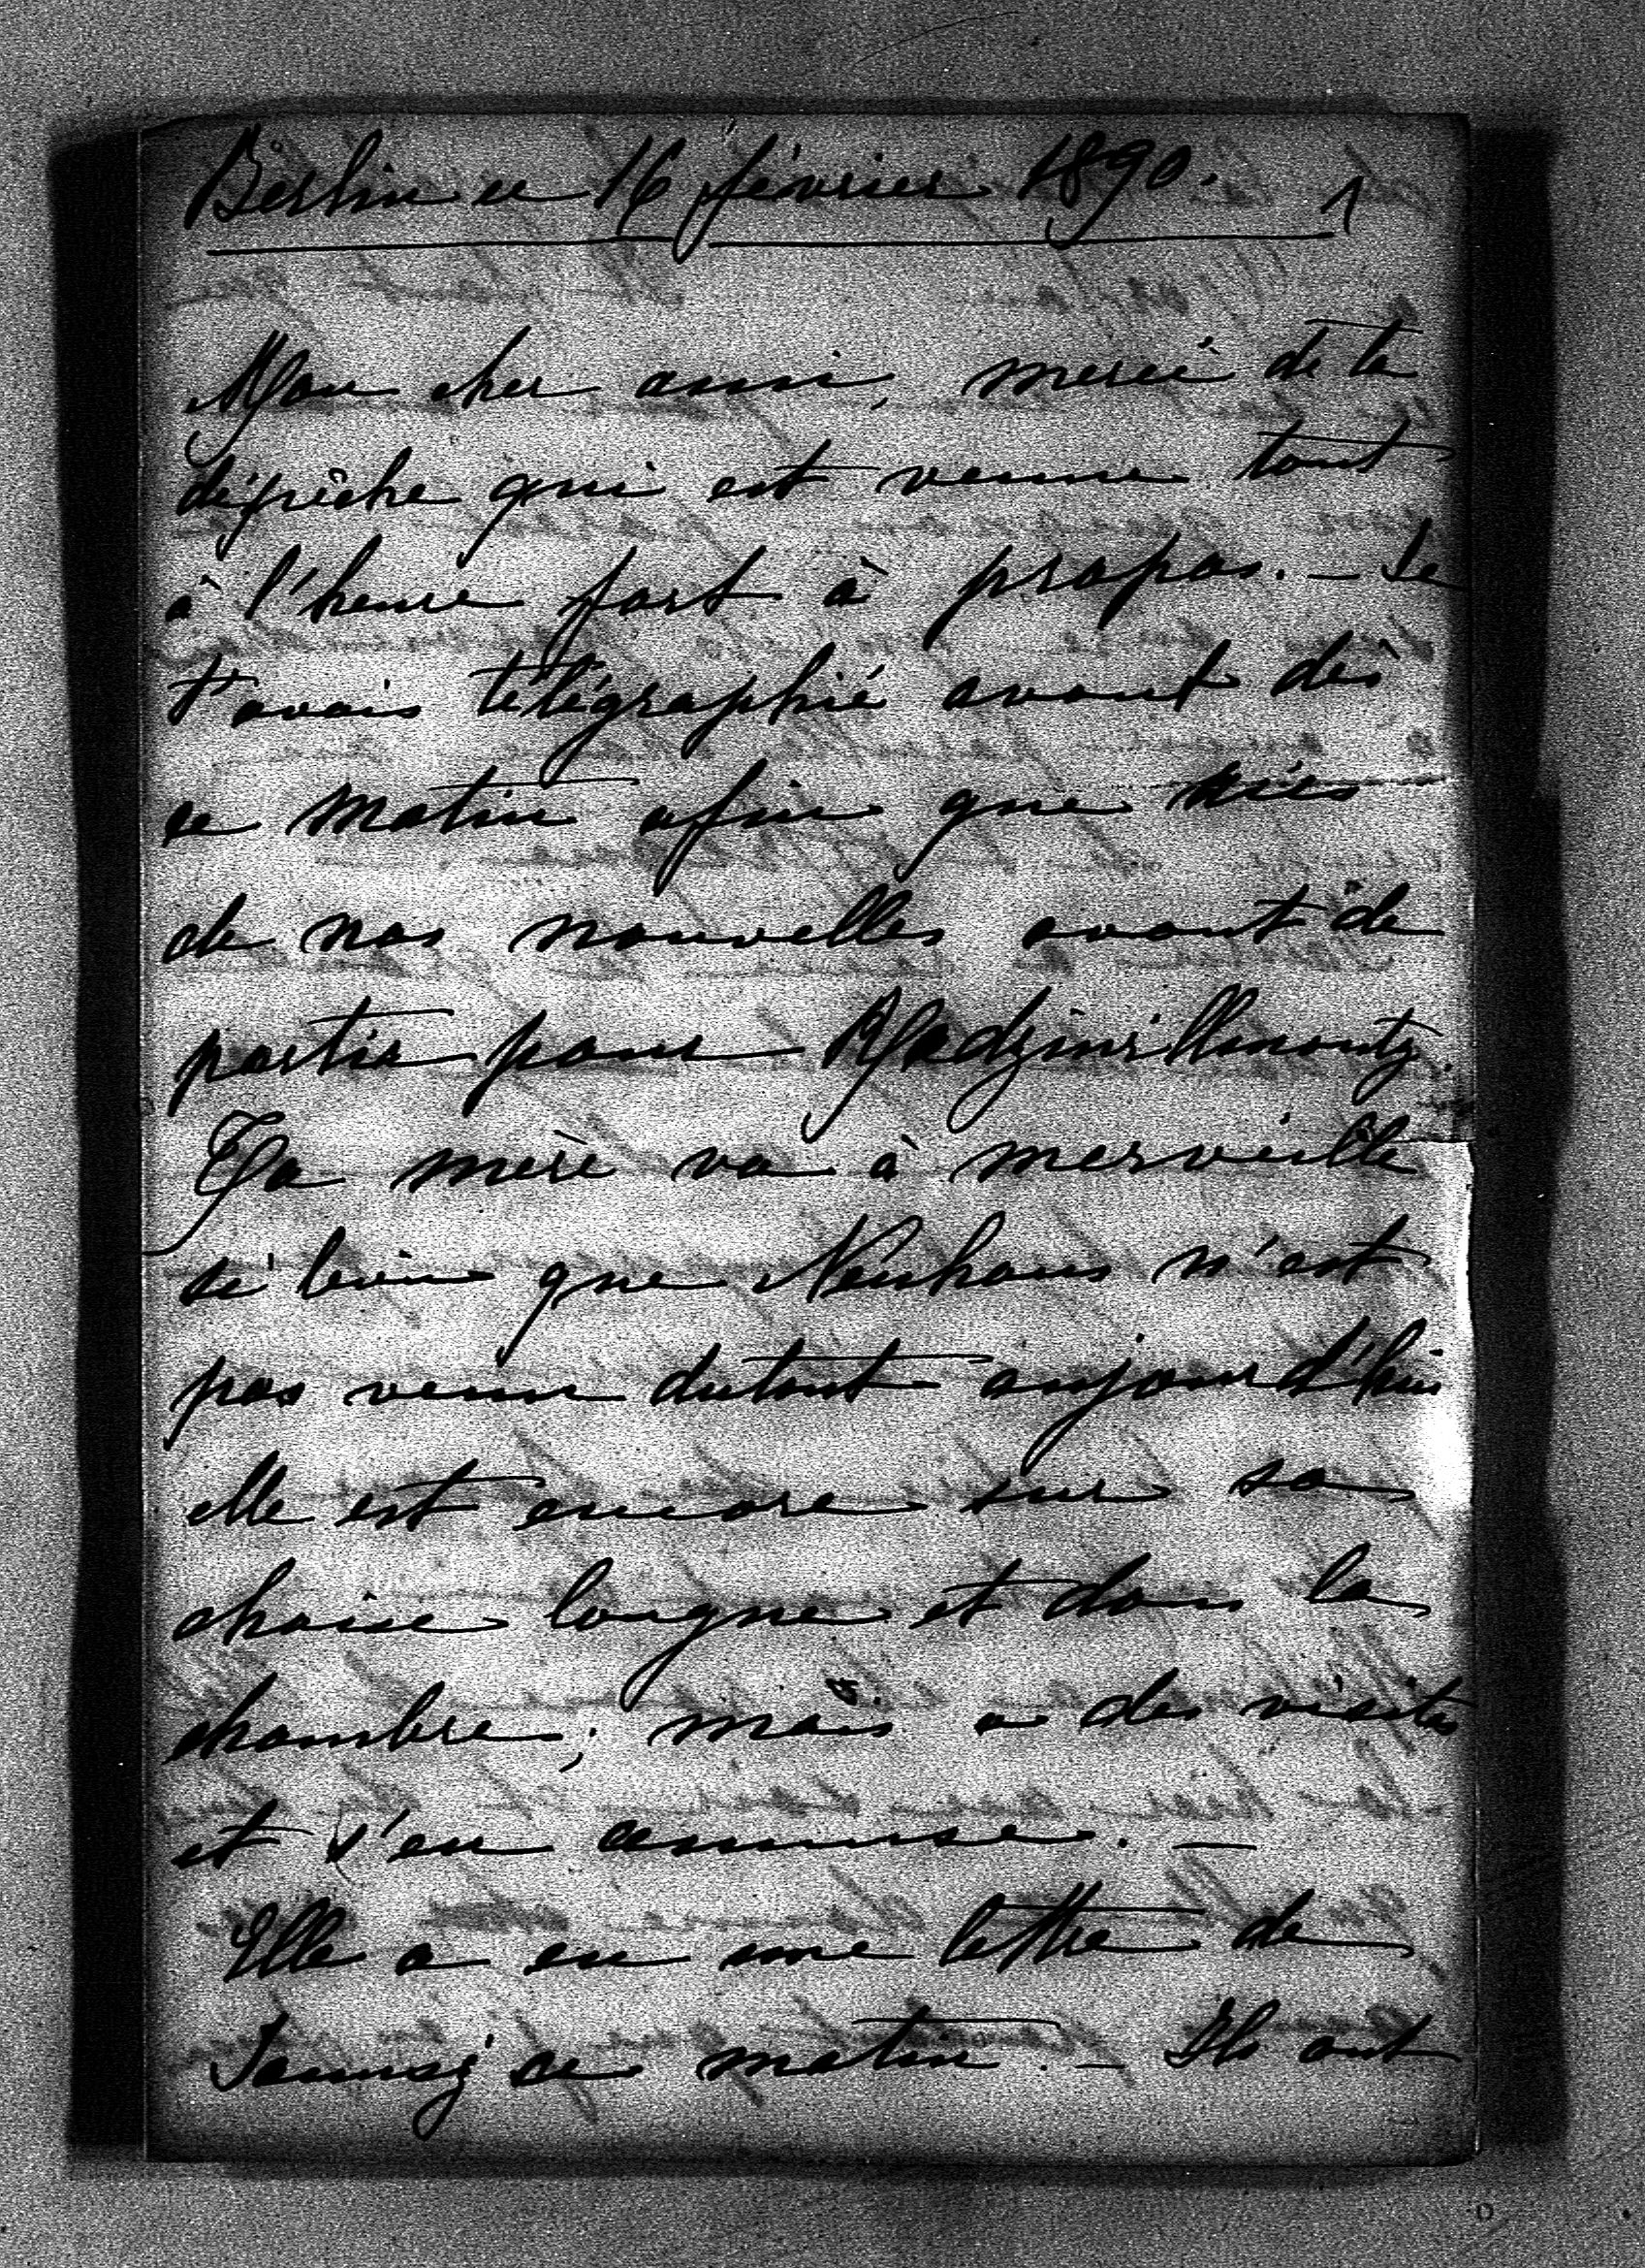 Berlin ce 16 février 1890. 1
Mon cher ami, merci de ta
dépêche qui est venue tout
à l'heure fort à propos. — Je
t'avais télégraphié avant dès
ce matin afin que
de nos nouvelles avant de
partir pour Radziwillmonty.
Ta mère va à merveille
si bien que Neuhaus n'est
pas venu dutout aujourd'hui
elle est encore sur sa
chaise longue et dans la
chambre; mais a des visites
et s'en amuse. —
Elle a eu une lettre de
ce matin. — Ils ont